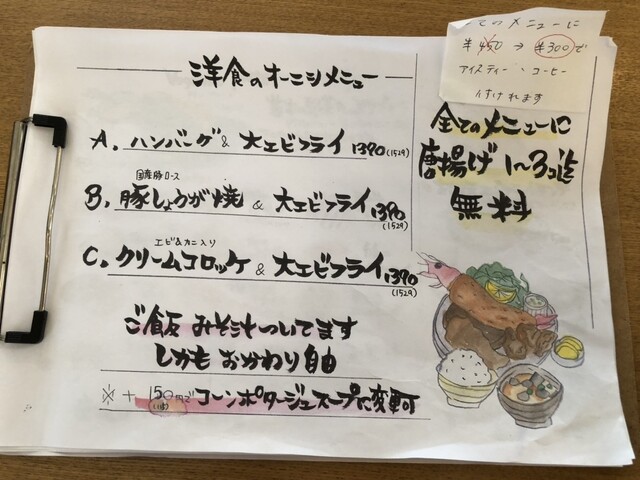 洋食のオーニシメニュー
A. ハンバーグ & 大エビフライ 1390 (1529)
国産豚ロース
B. 豚しょうが焼 & 大エビフライ 1390 (1529)
エビ&カニ入り
C. クリームコロッケ & 大エビフライ 1390 (1529)
ご飯 みそ汁ついてます
しかも おかわり自由
※ + 150円で コーンポタージュスープに変更可
全てのメニューに
¥450 → ¥300で
アイスティー、コーヒー
付けれます
全てのメニューに
唐揚げ 1〜3コ迄
無料